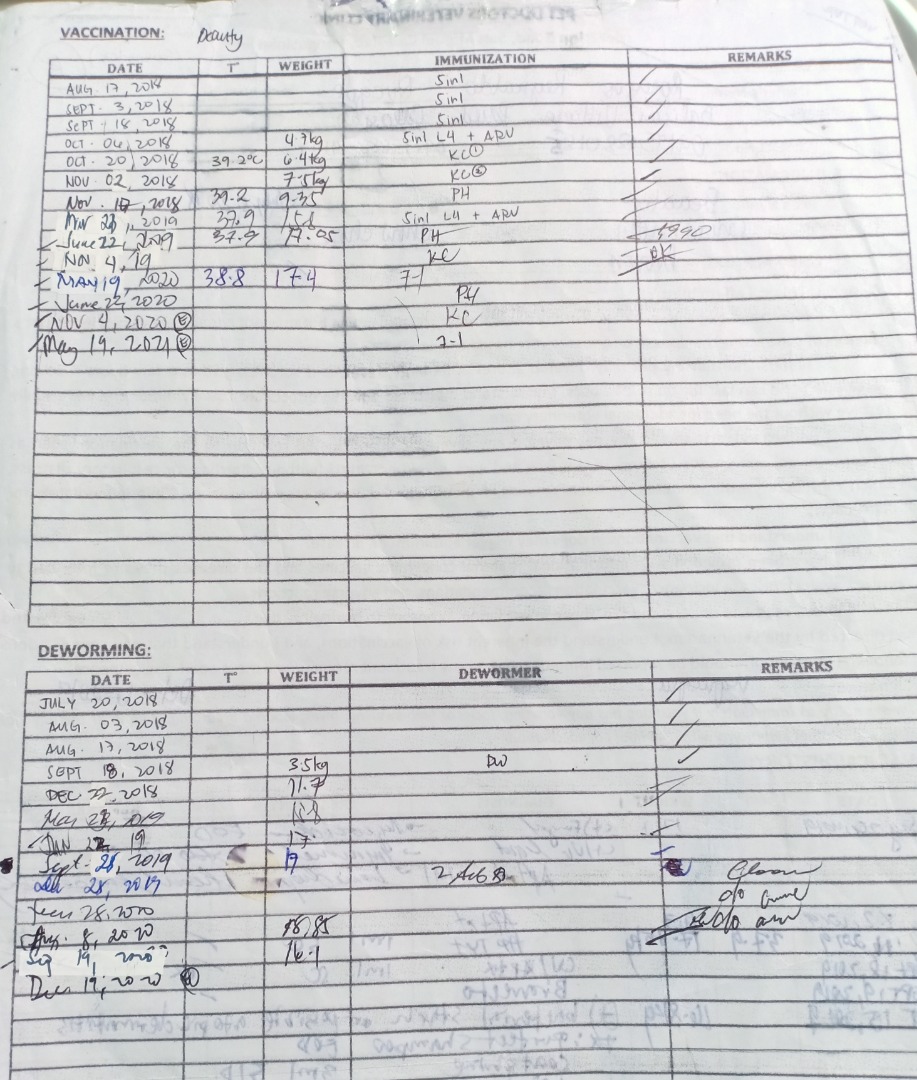 VACCINATION: Beauty
DATE T° WEIGHT IMMUNIZATION REMARKS
AUG. 17, 2018 5in1
SEPT. 3, 2018 5in1
SEPT. 18, 2018 5in1
OCT. 04, 2018 4.7kg 5in1 L4 + ARV
OCT. 20, 2018 39.2°C 6.4kg KC①
NOV. 02, 2018 7.5kg KC②
Nov. 17, 2018 39.2 9.35 PH
2019 37.9 15.8 5in1 L4 + ARV
June 22, 2019 37.9 17.05 PH
NOV. 4, 19 KC
MAY 19, 2020 38.8 17.4 7-1
June 22, 2020 PH
NOV 4, 2020 Ⓔ KC
May 19, 2021 Ⓔ 7-1
DEWORMING:
DATE T° WEIGHT DEWORMER REMARKS
JULY 20, 2018
AUG. 03, 2018
AUG. 17, 2018
SEPT 18, 2018 3.5kg DW
DEC 22, 2018 11.7
2019 15.8
19 17
Sept. 28, 2019 17
28, 2019
28, 2020
Aug. 8, 2020 18.85
19, 2020 16.1
Dec 19, 2020